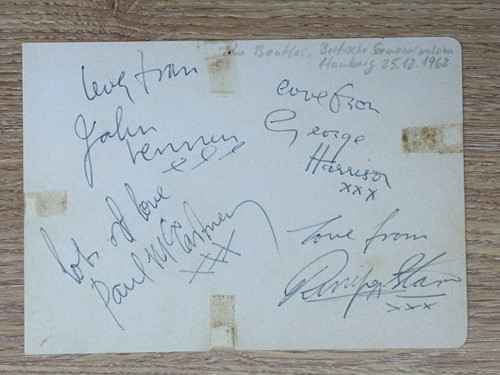 The Beatles, Britische Seemannsmission
Hamburg 25.12.1962
love from
John
Lennon
love from
George
Harrison
xxx
lots of love
Paul McCartney
xxx
love from
Ringo Starr
xxx